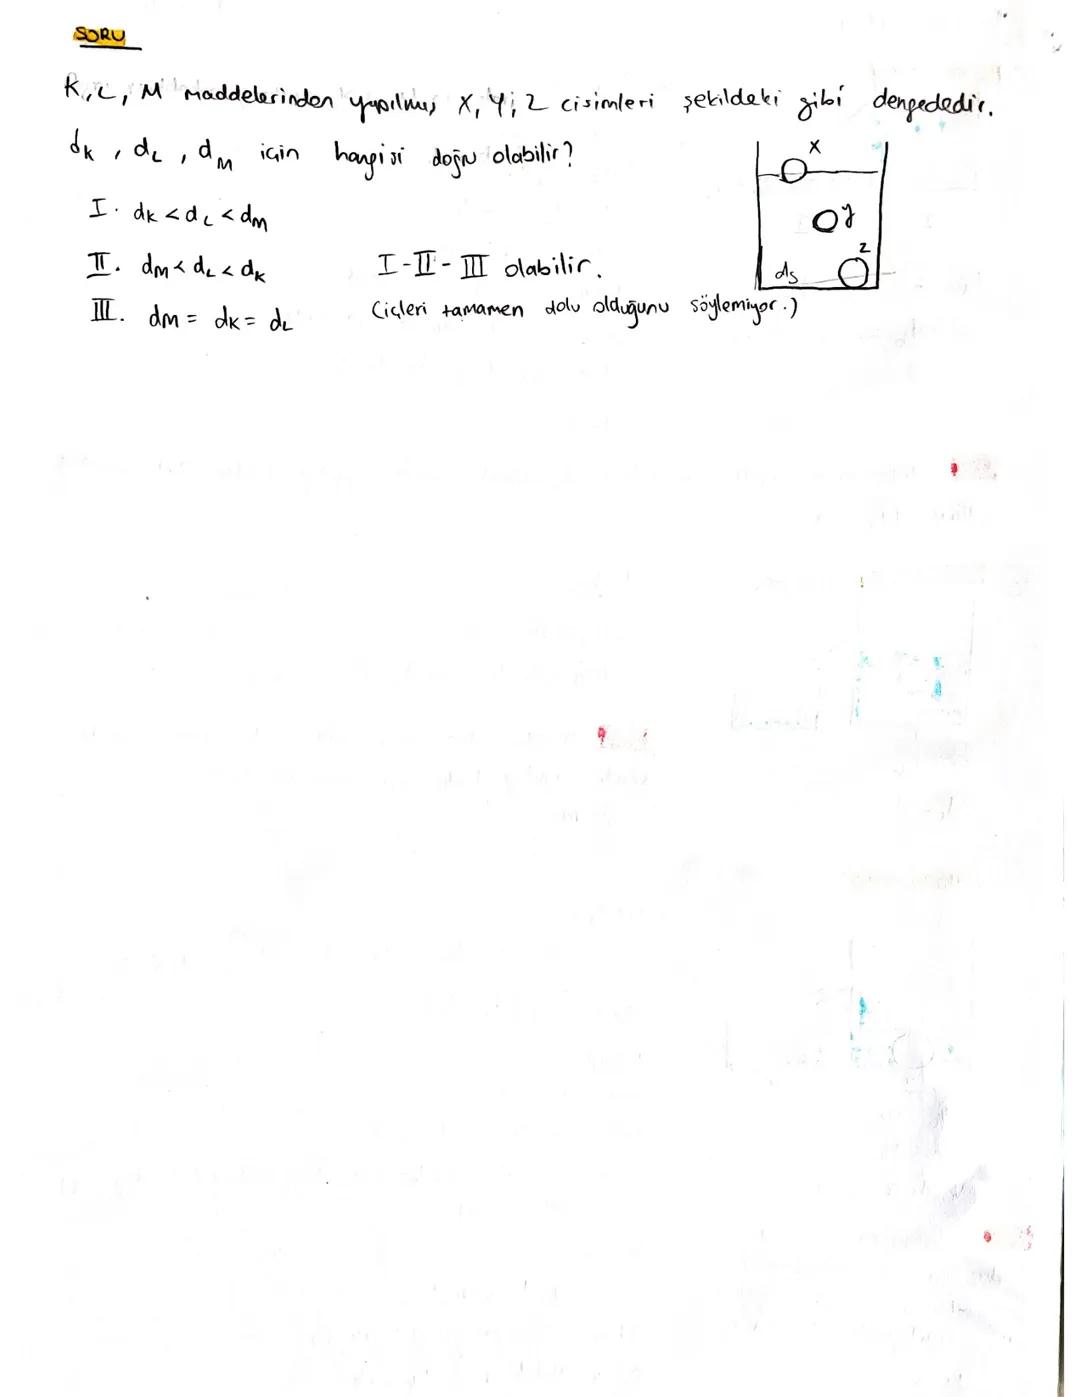 SORU
K, L, M maddelerinden yapılmış X, Y, Z cisimleri şekildeki gibi dengededir.
dK, dL, dM için hangisi doğru olabilir?
X
I. dK < dL < dM
y
II. dM < dL < dK
I-II-III olabilir.
z
ds
III. dM = dK = dL
(içleri tamamen dolu olduğunu söylemiyor.)